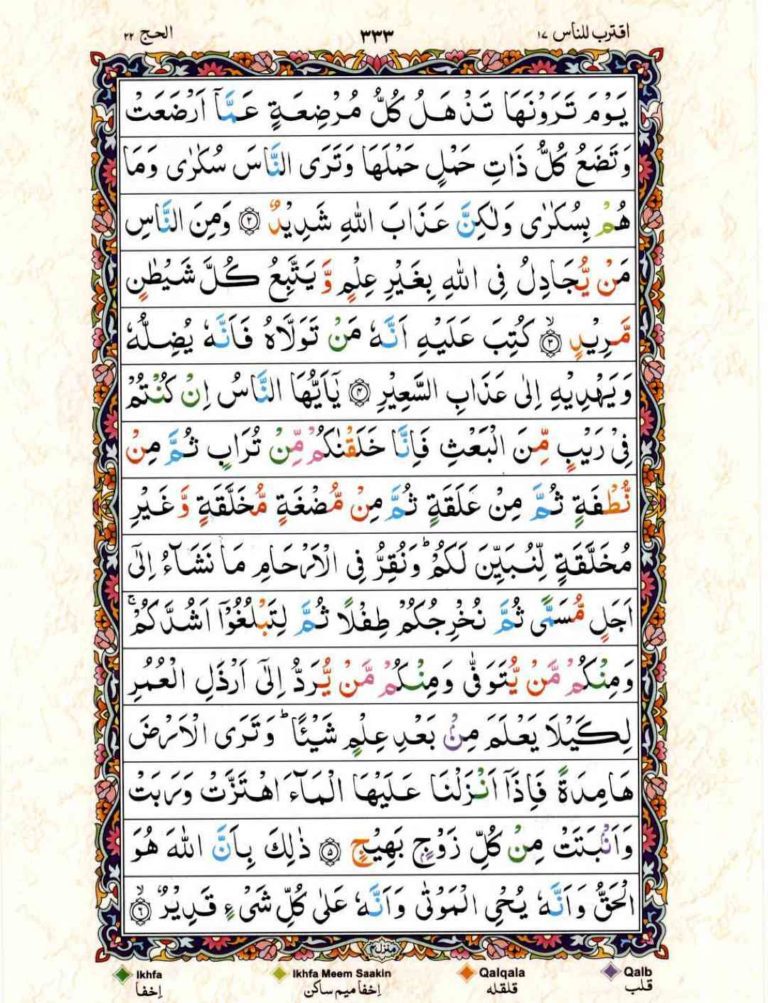 اقترب للناس ۱۷ ۳۳۳ الحج ۲۲
يَوْمَ تَرَوْنَهَا تَذْهَلُ كُلُّ مُرْضِعَةٍ عَمَّاۤ اَرْضَعَتْ
وَتَضَعُ كُلُّ ذَاتِ حَمْلٍ حَمْلَهَا وَتَرَى النَّاسَ سُكٰرٰى وَمَا
هُمْ بِسُكٰرٰى وَلٰكِنَّ عَذَابَ اللّٰهِ شَدِيْدٌ ﴿۲﴾ وَمِنَ النَّاسِ
مَنْ يُّجَادِلُ فِى اللّٰهِ بِغَيْرِ عِلْمٍ وَّيَتَّبِعُ كُلَّ شَيْطٰنٍ
مَّرِيْدٍ ۙ﴿۳﴾ كُتِبَ عَلَيْهِ اَنَّهٗ مَنْ تَوَلَّاهُ فَاَنَّهٗ يُضِلُّهٗ
وَيَهْدِيْهِ اِلٰى عَذَابِ السَّعِيْرِ ﴿۴﴾ يٰۤاَيُّهَا النَّاسُ اِنْ كُنْتُمْ
فِىْ رَيْبٍ مِّنَ الْبَعْثِ فَاِنَّا خَلَقْنٰكُمْ مِّنْ تُرَابٍ ثُمَّ مِنْ
نُّطْفَةٍ ثُمَّ مِنْ عَلَقَةٍ ثُمَّ مِنْ مُّضْغَةٍ مُّخَلَّقَةٍ وَّغَيْرِ
مُخَلَّقَةٍ لِّنُبَيِّنَ لَكُمْ ؕ وَنُقِرُّ فِى الْاَرْحَامِ مَا نَشَآءُ اِلٰٓى
اَجَلٍ مُّسَمًّى ثُمَّ نُخْرِجُكُمْ طِفْلًا ثُمَّ لِتَبْلُغُوْۤا اَشُدَّكُمْ ۚ
وَمِنْكُمْ مَّنْ يُّتَوَفّٰى وَمِنْكُمْ مَّنْ يُّرَدُّ اِلٰٓى اَرْذَلِ الْعُمُرِ
لِكَيْلَا يَعْلَمَ مِنْۢ بَعْدِ عِلْمٍ شَيْـًٔا ؕ وَتَرَى الْاَرْضَ
هَامِدَةً فَاِذَاۤ اَنْزَلْنَا عَلَيْهَا الْمَآءَ اهْتَزَّتْ وَرَبَتْ
وَاَنْۢبَتَتْ مِنْ كُلِّ زَوْجٍۭ بَهِيْجٍ ﴿۵﴾ ذٰلِكَ بِاَنَّ اللّٰهَ هُوَ
الْحَقُّ وَاَنَّهٗ يُحْىِ الْمَوْتٰى وَاَنَّهٗ عَلٰى كُلِّ شَىْءٍ قَدِيْرٌ ۙ﴿۶﴾
منزل۴
Ikhfa Ikhfa Meem Saakin Qalqala Qalb
اِخفا اِخفا میم ساکن قلقله قلب